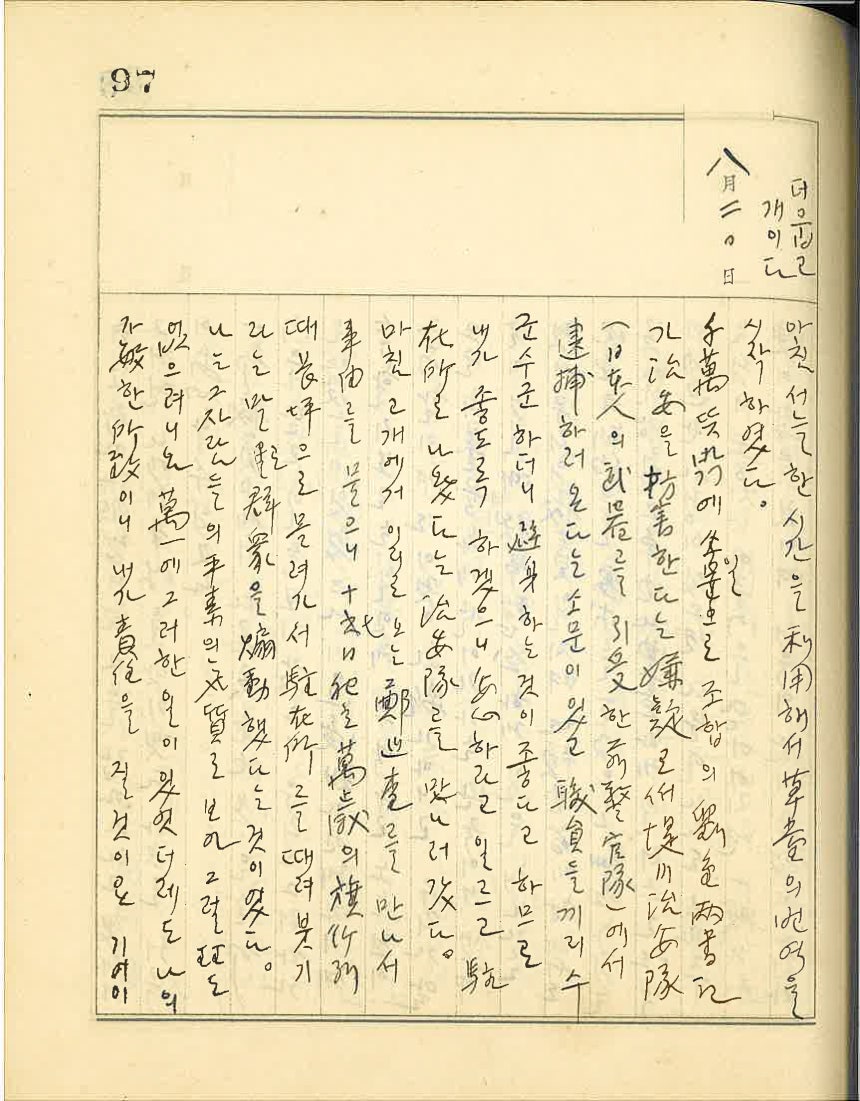 97
더웁고
개이다
八月二〇日
아침 서늘한 시간을 利用해서 草堂의 번역을
시작하였다.
千萬뜻밖에 소문으로 조합의 두
가 治安을 妨害한다는 嫌疑로써 堤川治安隊
(日本人의 武器를 引受한 前警官隊)에서
逮捕하러 온다는 소문이 있고 職員들끼리 수
군수군 하더니 避身하는 것이 좋다고 하므로
내가 좋도록 하겠으니 安心하라고 일르고 駐
在所로 나왔다는 治安隊를 만나러 갔다.
마침 고개에서 이리로 오는 鄭巡査를 만나서
事由를 물으니 十七日 萬歲의 旗行列
때 長坪으로 몰려가서 駐在所를 때려 붓기
라는 말로 群衆을 煽動했다는 것이였다.
나는 그 사람들의 平素의 気質로 보아 그럴 理도
없으려니와 萬一에 그러한 일이 있었더래도 나의
不敏한 所致이니 내가 責任을 질 것이요 기어이